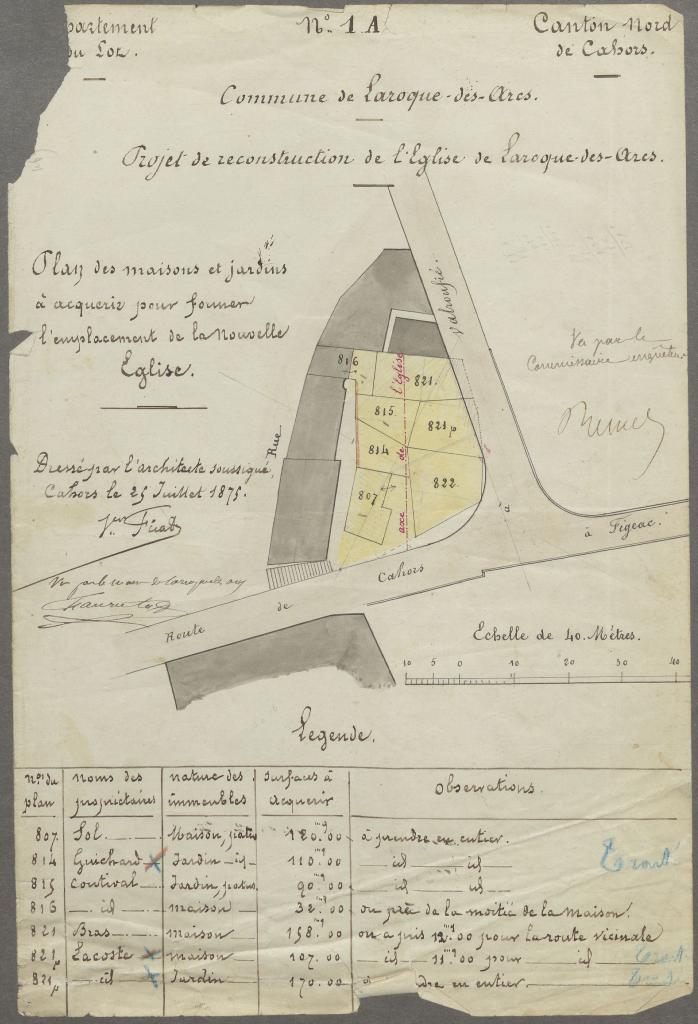 partement
du Lot.
N.º 1 A
Canton Nord
de Cahors.
Commune de Laroque-des-Arcs.
Projet de reconstruction de l'Eglise de Laroque-des-Arcs.
Plan des maisons et jardins
à acquerir pour former
l'emplacement de la Nouvelle
Eglise.
Dressé par l'architecte soussigné,
Cahors le 25 Juillet 1875.
Vu par le
Commissaire enquêteur
Valroufié.
816
821.
815.
821p
814
807
822
axe de l'Eglise
Rue
à
à Figeac.
Cahors
de
Route
Vu par le
Echelle de 40. Mètres.
10 5 0 10 20 30 40
Legende.
nos du plan | noms des propriétaires | nature des immeubles | surfaces à acquerir | Observations.
807 Sol. Maison, patus 120.mq00 à prendre en entier.
814 Guichard Jardin id 110.mq00 id id
815 Coutival Jardin, patus. 90.mq00 id id
816 id maison 32.mq00 ou près de la moitié de la maison.
821 Bras maison 158.mq00 on a pris 12mq00 pour la route vicinale
821p Lacoste maison 107.00 id 11mq00 pour id
821p id Jardin 170.00 dre en entier.